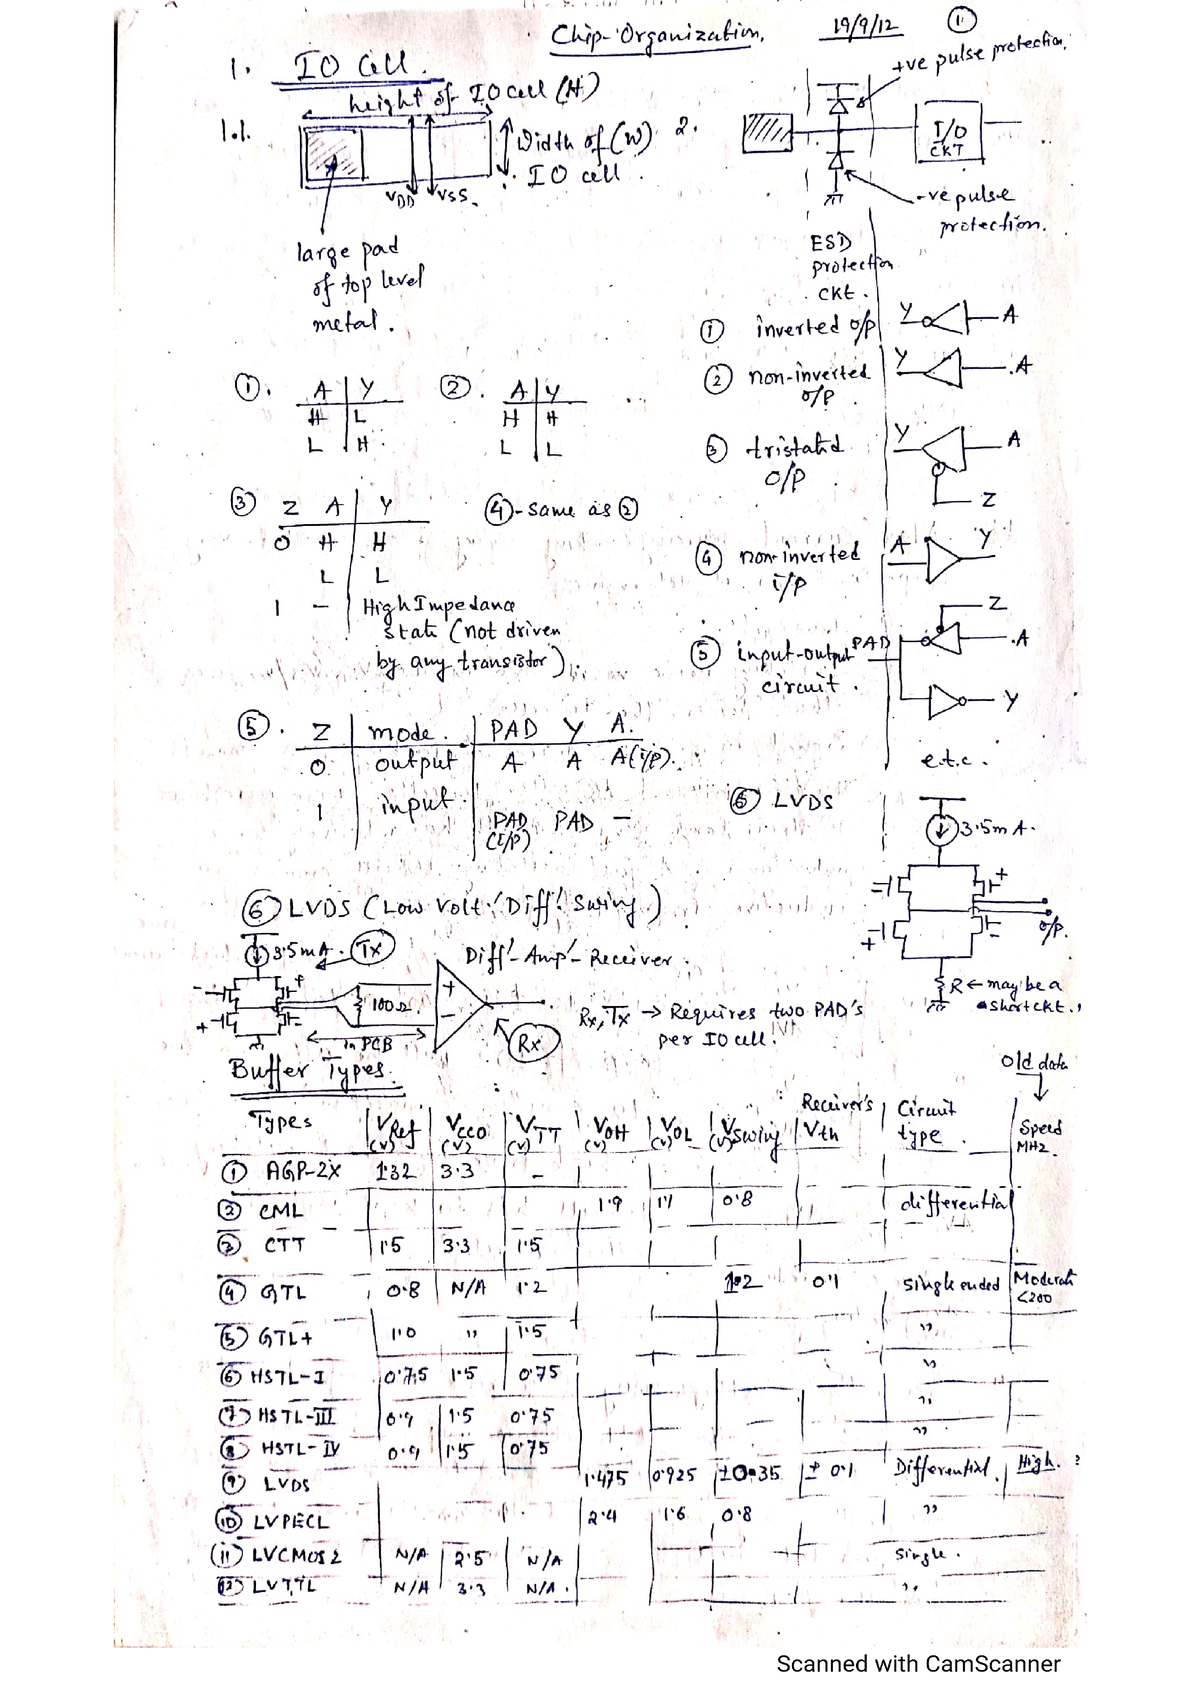 Chip-Organization. 19/9/12 ①
1. IO Cell.
height of IO cell (H)
1.1.
Width of (W)
IO cell.
VDD VSS.
large pad
of top level
metal.
2.
+ve pulse protection.
I/O
CKT
-ve pulse
protection.
ESD
protection
ckt.
① inverted o/p Y A
② non-inverted
o/p. Y A
③ tristated
o/p Y A
Z
④ non-inverted
i/p A Y
⑤ input-output
circuit. PAD Z
A
Y
e.t.c.
①. A Y
H L
L H
②. A Y
H H
L L
③ Z A Y
0 H H
L L
1 - High Impedance
state (not driven
by any transistor).
④ - same as ②
⑤. Z mode. PAD Y A.
0 output A A A(i/p).
1 input PAD PAD -
(I/P)
⑥ LVDS
3.5mA.
+
-
+
o/p.
R ← may be a
short ckt.
⑥ LVDS (Low Volt. Diff. Swing)
3.5mA. Tx Diff'-Amp'-Receiver.
- +
+ -
100Ω
+
-
in PCB
Rx
Rx, Tx → Requires two PAD's
per IO cell!
Buffer Types.
Old data
Types VRef (v) VCCO (v) VTT (v) VOH (v) VOL (v) VSwing (v) Receiver's Vth Circuit type. Speed MHz.
① AGP-2X 1.32 3.3 -
② CML 1.9 1.1 0.8 differential
③ CTT 1.5 3.3 1.5
④ GTL 0.8 N/A 1.2 1.2 0.1 single ended Moderate <200
⑤ GTL+ 1.0 " 1.5 "
⑥ HSTL-I 0.75 1.5 0.75 "
⑦ HSTL-III 0.9 1.5 0.75 "
⑧ HSTL-IV 0.9 1.5 0.75 "
⑨ LVDS 1.475 0.925 ±0.35 ± 0.1 Differential. High.
⑩ LVPECL 2.4 1.6 0.8 "
⑪ LVCMOS2 N/A 2.5 N/A single.
⑫ LVTTL N/A 3.3 N/A. "
Scanned with CamScanner